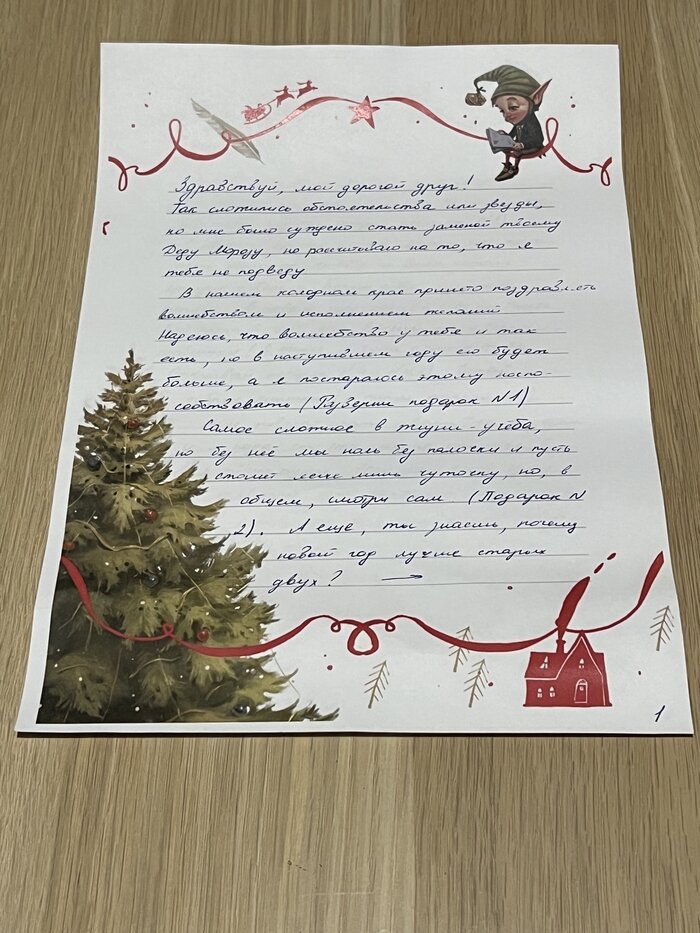 Здравствуй, мой дорогой друг!
Так сложились обстоятельства или звезды,
но мне было суждено стать заменой твоему
Деду Морозу, но рассчитываю на то, что я
тебя не подведу
В нашем холодном крае принято поздравлять
волшебством и исполнением желаний
Надеюсь, что волшебство у тебя и так
есть, но в наступившем году его будет
больше, а я постараюсь этому поспо-
собствовать (подарок N1)
Самое сложное в жизни - учеба,
но без неё мы ноль без палочки и пусть
станет легче лишь чуточку, но, в
общем, смотри сам (Подарок N
2). А еще, ты знаешь, почему
новый год лучше старых
двух? →
1